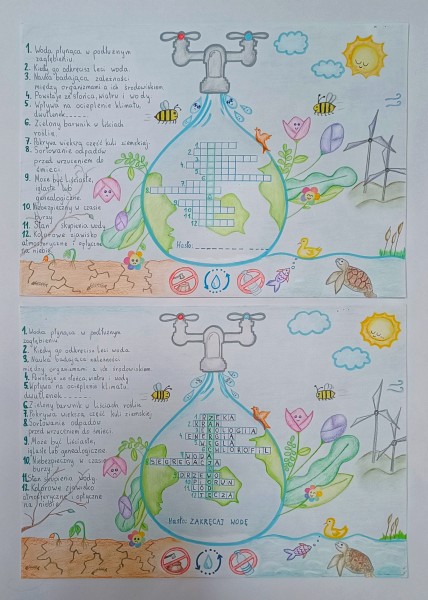 1. Woda płynąca w podłużnym
zagłębieniu
2. Kiedy go odkręcisz leci woda
3. Nauka badająca zależności
między organizmami a ich środowiskiem.
4. Powstaje ze słońca, wiatru i wody.
5. Wpływa na ocieplenie klimatu,
dwutlenek......
6. Zielony barwnik w liściach
roślin.
7. Pokrywa większą część kuli ziemskiej.
8. Sortowanie odpadów
przed wrzuceniem do
śmieci.
9. Może być liściaste,
iglaste lub
genealogiczne.
10. Niebezpieczny w czasie
burzy
11. Stan skupienia wody.
12. Kolorowe zjawisko
atmosferyczne i optyczne
na niebie.
Hasło:
1. Woda płynąca w podłużnym
zagłębieniu
2. Kiedy go odkręcisz leci woda
3. Nauka badająca zależności
między organizmami a ich środowiskiem.
4. Powstaje ze słońca, wiatru i wody
5. Wpływa na ocieplenie klimatu,
dwutlenek......
6. Zielony barwnik w liściach roślin.
7. Pokrywa większą część kuli ziemskiej.
8. Sortowanie odpadów
przed wrzuceniem do śmieci.
9. Może być liściaste,
iglaste lub genealogiczne
10. Niebezpieczny w czasie
burzy
11. Stan skupienia wody.
12. Kolorowe zjawisko
atmosferyczne i optyczne
na niebie.
1 RZEKA
2 KRAN
3 EKOLOGIA
4 ENERGIA
5 WĘGLA
6 CHLOROFIL
7 WODA
8 SEGREGACJA
9 DRZEWO
10 PIORUN
11 LÓD
12 TĘCZA
Hasło: ZAKRĘCAJ WODĘ